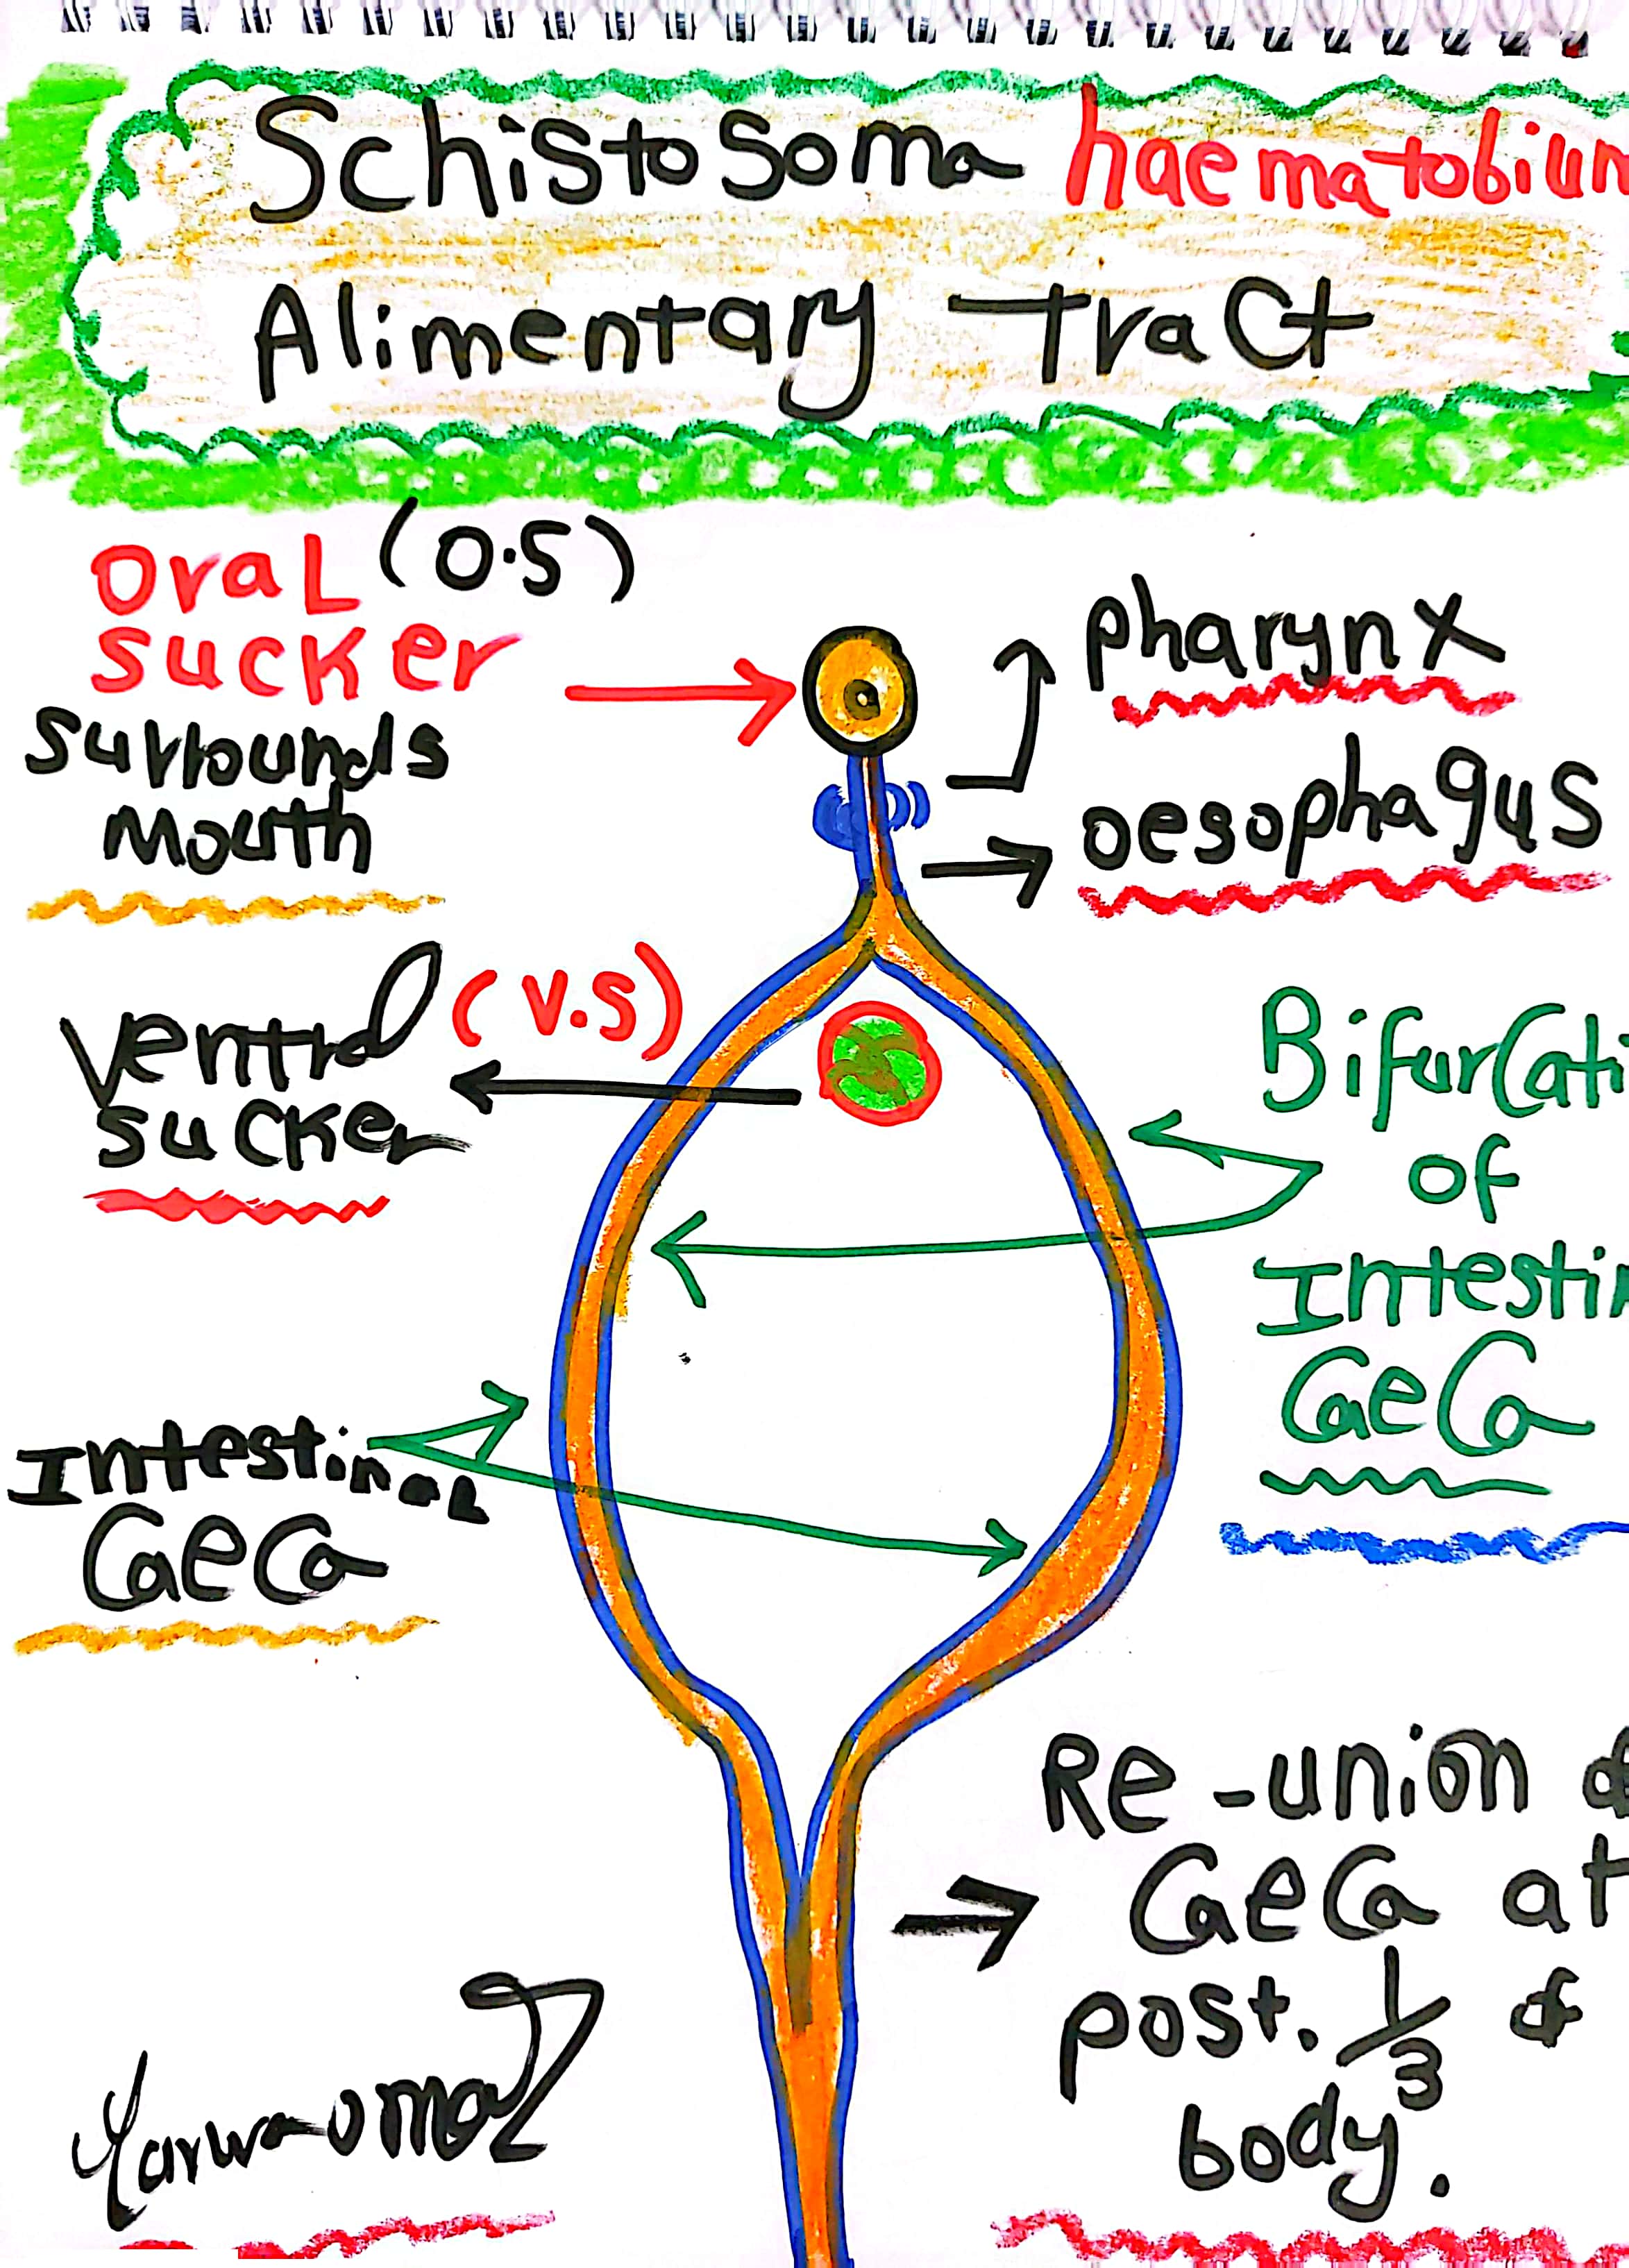 Schistosoma haematobium
Alimentary tract
oval (O.S)
sucker
surrounds
mouth
pharynx
oesophagus
ventral (V.S)
sucker
Bifurcati
of
Intestin
CaeCa
Intestinal
CaeCa
Re-union of
CaeCa at
post. 1/3 of
body.